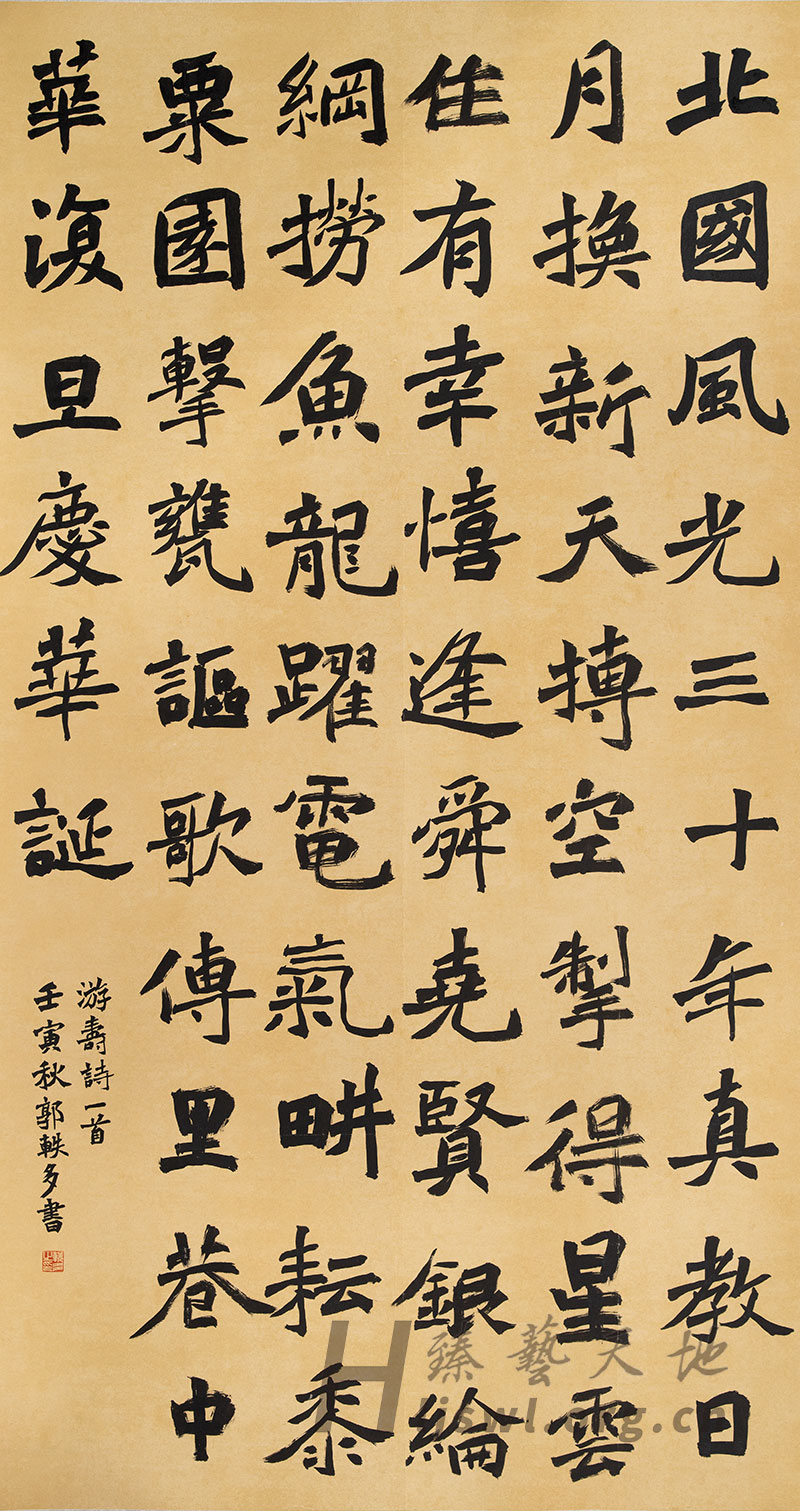 北國風光三十年真教日
月換新天搏空掣得星雲
住有幸憘逢舜堯賢銀綸
綱撈魚龍躍電氣畊耘黍
粟園擊甕謳歌傳里巷中
華復旦慶華誕
游壽詩一首
壬寅秋郭軼多書
臻藝天地
Hjswl.org.cn